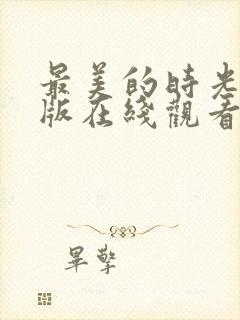 最美的時光
版在綫觀看
畢擎